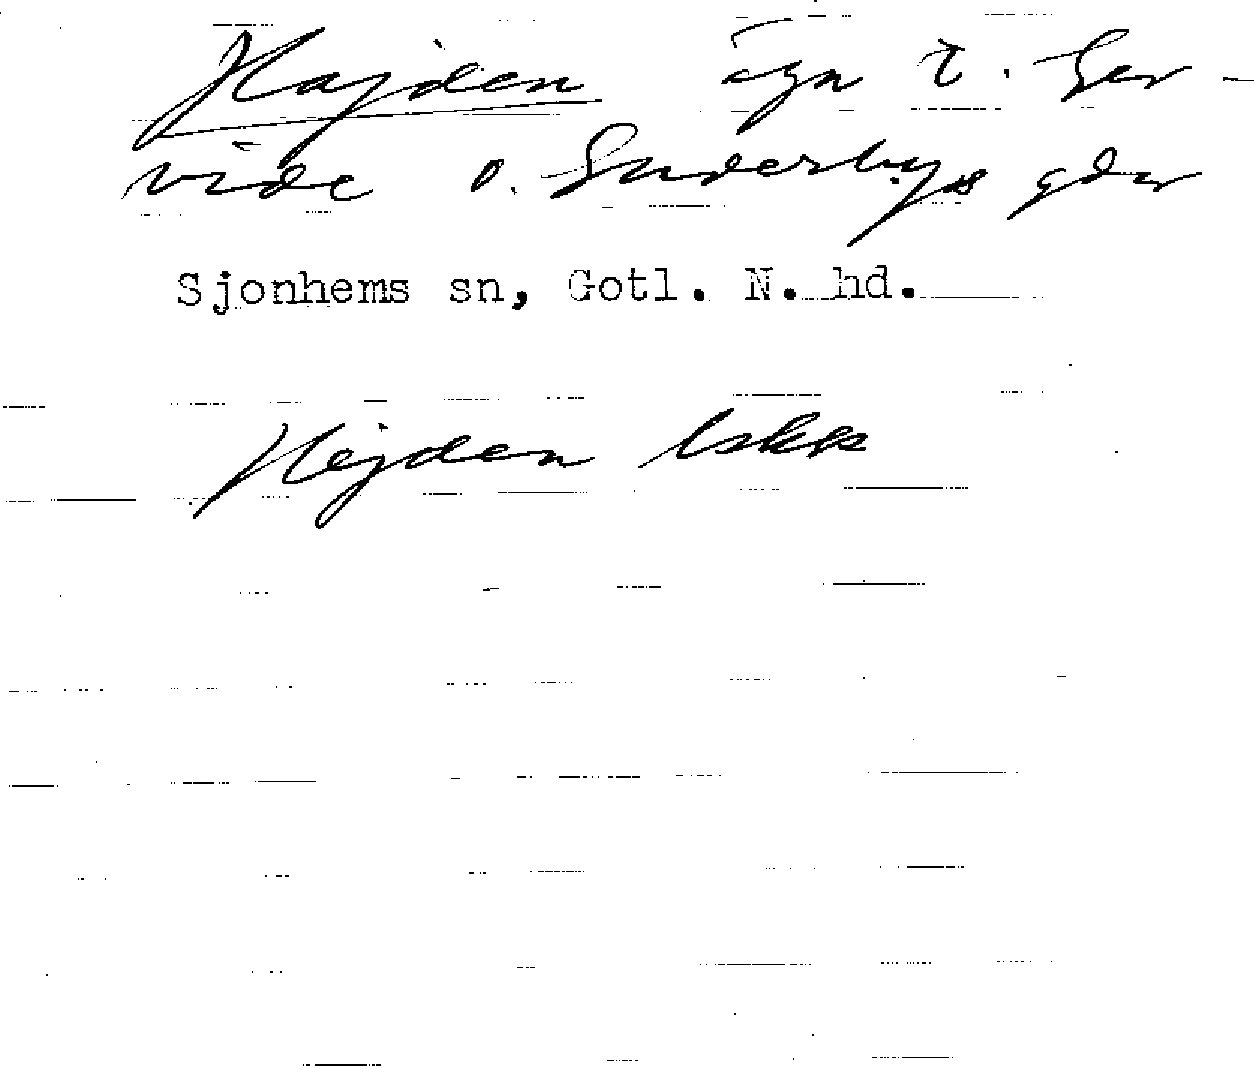 Hajden ägn t. Ger-
vide o. Suderbys gdar
Sjonhems sn, Gotl. N. hd.
Hejden Uskk